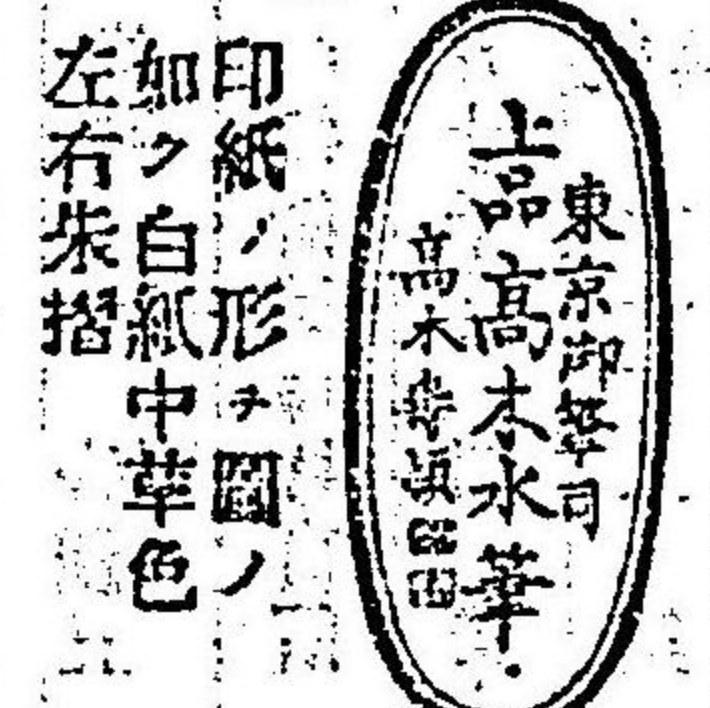 東京御筆司
上品高木水筆
高木
印紙ノ形チ圖ノ
如ク白紙中草色
左右朱摺